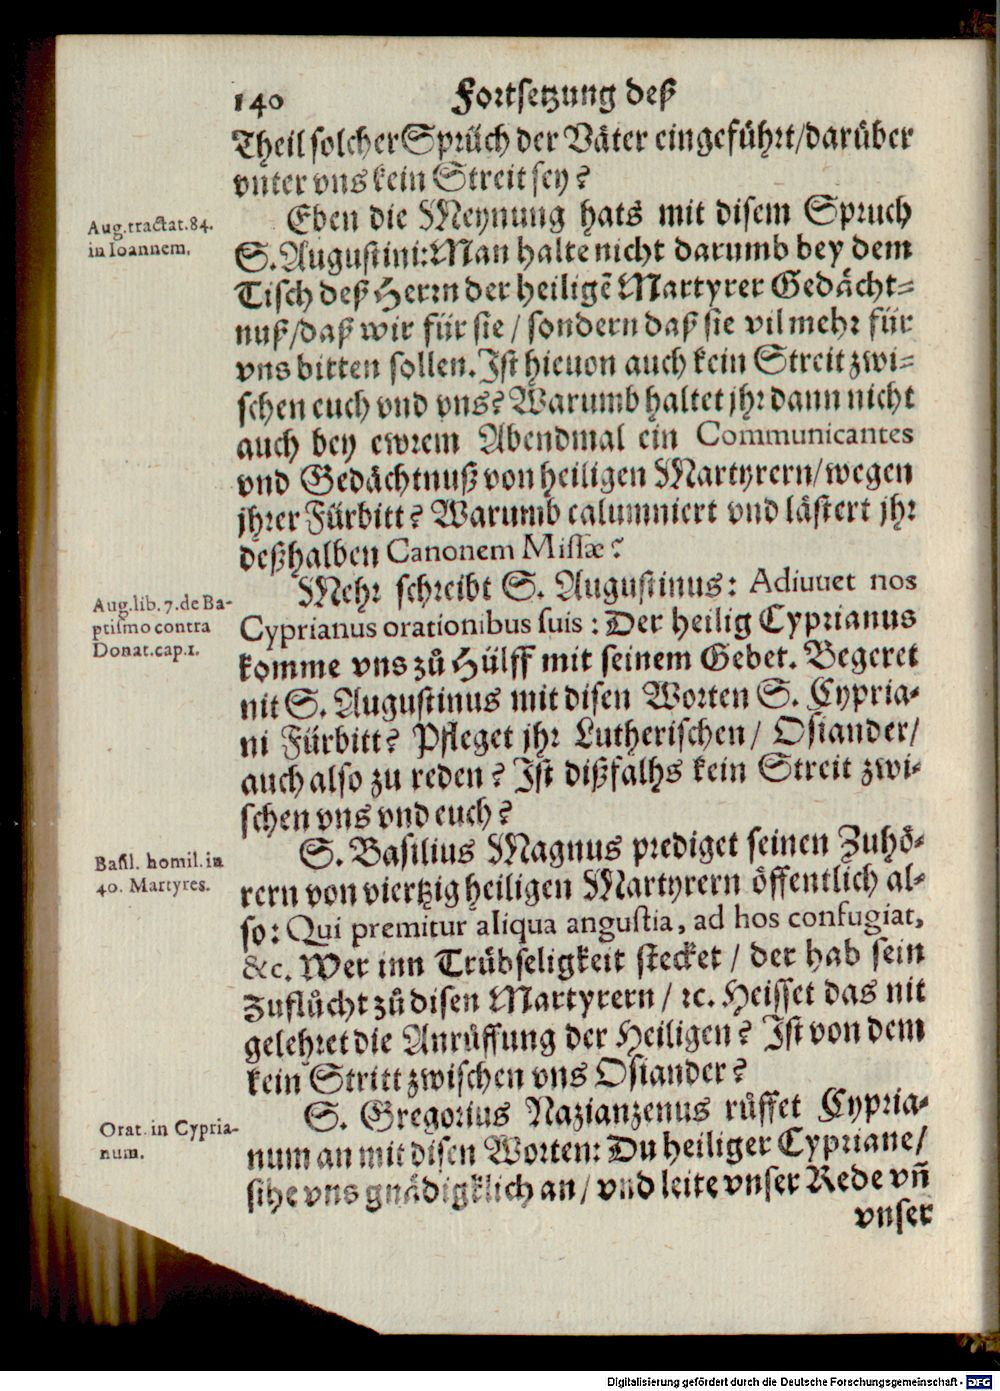 140 Fortsetzung deß
Theil solcher Sprüch der Väter eingeführt/darüber
vnter vns kein Streit sey?
Aug. tractat. 84.
in Ioannem.
Eben die Meynung hats mit disem Spruch
S. Augustini: Man halte nicht darumb bey dem
Tisch deß Herrn der heiligẽ Martyrer Gedächt-
nuß/daß wir für sie / sondern daß sie vil mehr für
vns bitten sollen. Ist hieuon auch kein Streit zwi-
schen euch vnd vns? Warumb haltet jhr dann nicht
auch bey ewrem Abendmal ein Communicantes
vnd Gedächtnuß von heiligen Martyrern/wegen
jhrer Fürbitt? Warumb calumniert vnd lästert jhr
deßhalben Canonem Missæ?
Aug. lib. 7. de Ba-
ptismo contra
Donat. cap. 1.
Mehr schreibt S. Augustinus: Adiuuet nos
Cyprianus orationibus suis : Der heilig Cyprianus
komme vns zů Hülff mit seinem Gebet. Begeret
nit S. Augustinus mit disen Worten S. Cypria-
ni Fürbitt? Pfleget jhr Lutherischen / Osiander/
auch also zu reden? Ist dißfalhs kein Streit zwi-
schen vns vnd euch?
Basil. homil. in
40. Martyres.
S. Basilius Magnus prediget seinen Zuhö-
rern von viertzig heiligen Martyrern öffentlich al-
so: Qui premitur aliqua angustia, ad hos confugiat,
&c. Wer inn Trübseligkeit stecket / der hab sein
Zuflůcht zů disen Martyrern / ꝛc. Heisset das nit
gelehret die Anrůffung der Heiligen? Ist von dem
kein Stritt zwischen vns Osiander?
Orat. in Cypria-
num.
S. Gregorius Nazianzenus růffet Cypria-
num an mit disen Worten: Du heiliger Cypriane/
sihe vns gnädigklich an / vnd leite vnser Rede vñ
vnser
Digitalisierung gefördert durch die Deutsche Forschungsgemeinschaft - DFG